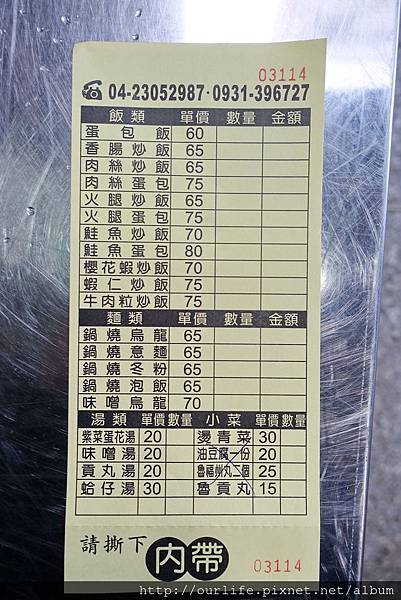 03114
☎ 04-23052987·0931-396727
飯類 單價 數量 金額
蛋包飯 60
香腸炒飯 65
肉絲炒飯 65
肉絲蛋包 75
火腿炒飯 65
火腿蛋包 75
鮭魚炒飯 70
鮭魚蛋包 80
櫻花蝦炒飯 70
蝦仁炒飯 75
牛肉粒炒飯 75
麵類 單價 數量 金額
鍋燒烏龍 65
鍋燒意麵 65
鍋燒冬粉 65
鍋燒泡飯 65
味噌烏龍 70
湯類 單價 數量 小菜 單價 數量
紫菜蛋花湯 20 燙青菜 30
味噌湯 20 油豆腐一份 20
貢丸湯 20 魯福州丸二個 25
蛤仔湯 30 魯貢丸 15
請撕下 內帶 03114
http://ourlife.pixnet.net/album